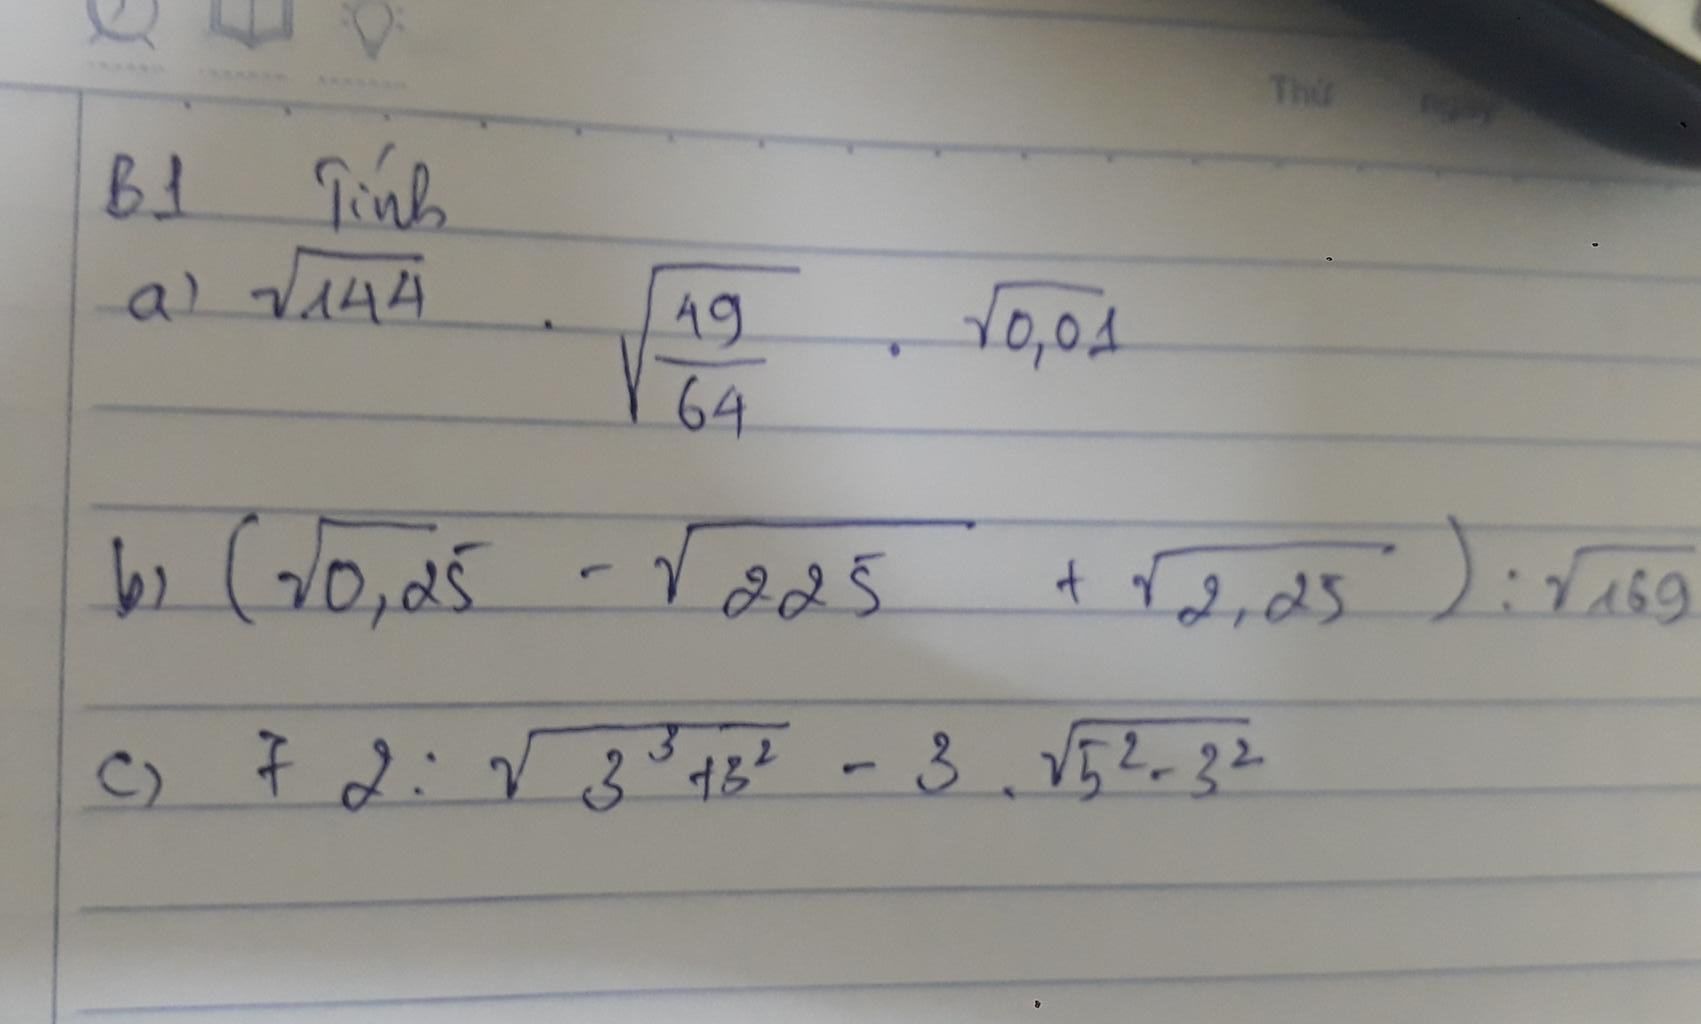 Thứ Ngày
B1 Tính
a) √144 . √(49/64) . √0,01
b) (√0,25 - √225 + √2,25) : √169
c) 72 : √(3³+3²) - 3 . √(5²-3²)